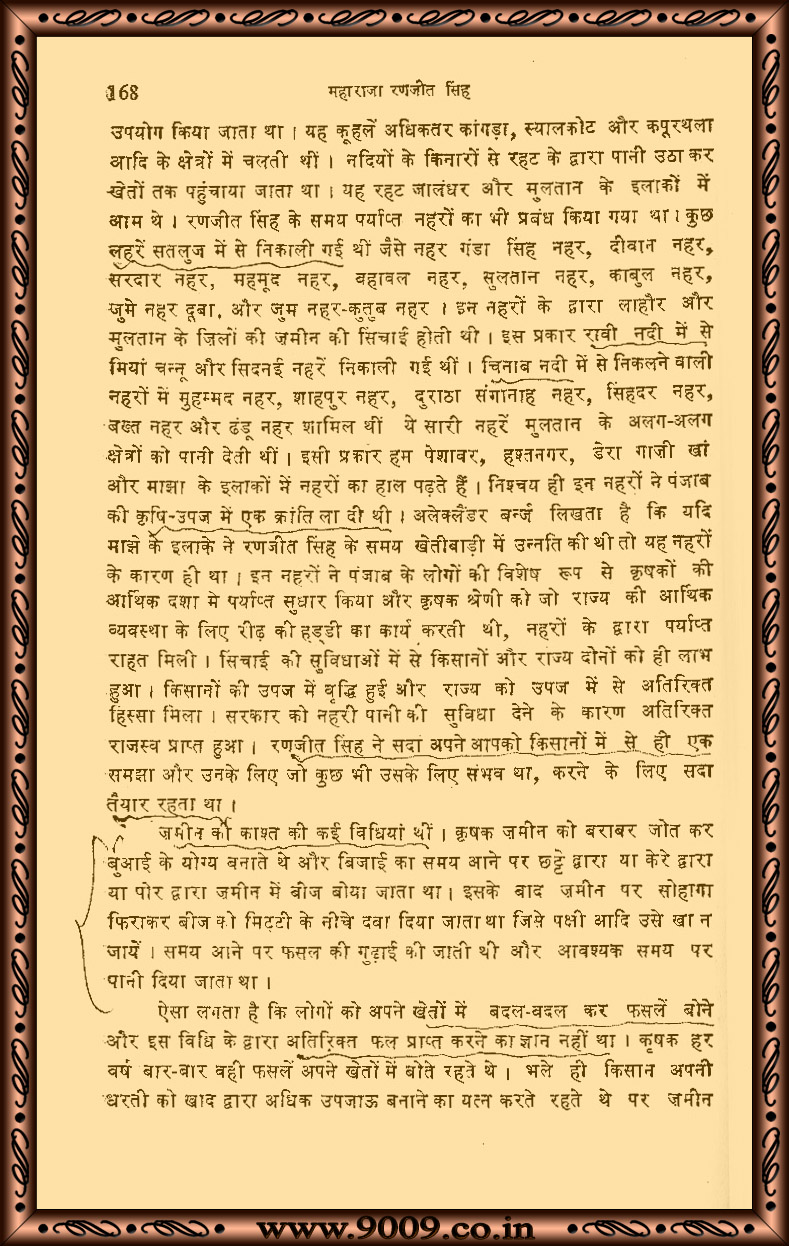 168 महाराजा रणजीत सिंह
उपयोग किया जाता था । यह कूहलें अधिकतर कांगड़ा, स्यालकोट और कपूरथला
आदि के क्षेत्रों में चलती थीं । नदियों के किनारों से रहट के द्वारा पानी उठा कर
खेतों तक पहुंचाया जाता था । यह रहट जालंधर और मुलतान के इलाकों में
आम थे । रणजीत सिंह के समय पर्याप्त नहरों का भी प्रबंध किया गया था । कुछ
लहरें सतलुज में से निकाली गई थीं जैसे नहर गंडा सिंह नहर, दीवान नहर,
सरदार नहर, महमूद नहर, वहावल नहर, सुलतान नहर, काबुल नहर,
जुमे नहर दूबा, और जुम नहर-कुतुब नहर । इन नहरों के द्वारा लाहौर और
मुलतान के ज़िलों की ज़मीन की सिंचाई होती थी । इस प्रकार रावी नदी में से
मियां चन्नू और सिदनई नहरें निकाली गई थीं । चिनाब नदी में से निकलने वाली
नहरों में मुहम्मद नहर, शाहपुर नहर, दुराठा संगानाह नहर, सिंहदर नहर,
बख्त नहर और ढंडू नहर शामिल थीं ये सारी नहरें मुलतान के अलग-अलग
क्षेत्रों को पानी देती थीं । इसी प्रकार हम पेशावर, हश्तनगर, डेरा गाज़ी खां
और माझा के इलाकों में नहरों का हाल पढ़ते हैं । निश्चय ही इन नहरों ने पंजाब
की कृषि-उपज में एक क्रांति ला दी थी । अलेक्लैंडर बर्न्ज लिखता है कि यदि
माझे के इलाके ने रणजीत सिंह के समय खेतीबाड़ी में उन्नति की थी तो यह नहरों
के कारण ही था । इन नहरों ने पंजाब के लोगों की विशेष रूप से कृषकों की
आर्थिक दशा मे पर्याप्त सुधार किया और कृषक श्रेणी को जो राज्य की आर्थिक
व्यवस्था के लिए रीढ़ की हड्डी का कार्य करती थी, नहरों के द्वारा पर्याप्त
राहत मिली । सिंचाई की सुविधाओं में से किसानों और राज्य दोनों को ही लाभ
हुआ । किसानों की उपज में वृद्धि हुई और राज्य को उपज में से अतिरिक्त
हिस्सा मिला । सरकार को नहरी पानी की सुविधा देने के कारण अतिरिक्त
राजस्व प्राप्त हुआ । रणजीत सिंह ने सदा अपने आपको किसानों में से ही एक
समझा और उनके लिए जो कुछ भी उसके लिए संभव था, करने के लिए सदा
तैयार रहता था ।
ज़मीन की काश्त की कई विधियां थीं । कृषक ज़मीन को बराबर जोत कर
बुआई के योग्य बनाते थे और बिजाई का समय आने पर छट्टे द्वारा या केरे द्वारा
या पोर द्वारा ज़मीन में बीज बोया जाता था । इसके बाद ज़मीन पर सोहागा
फिराकर बीज को मिट्टी के नीचे दवा दिया जाता था जिसे पक्षी आदि उसे खा न
जायें । समय आने पर फसल की गुढ़ाई की जाती थी और आवश्यक समय पर
पानी दिया जाता था ।
ऐसा लगता है कि लोगों को अपने खेतों में बदल-वदल कर फसलें बोने
और इस विधि के द्वारा अतिरिक्त फल प्राप्त करने का ज्ञान नहीं था । कृषक हर
वर्ष बार-बार वही फसलें अपने खेतों में बोते रहते थे । भले ही किसान अपनी
धरती को खाद द्वारा अधिक उपजाऊ बनाने का यत्न करते रहते थे पर ज़मीन
www.9009.co.in